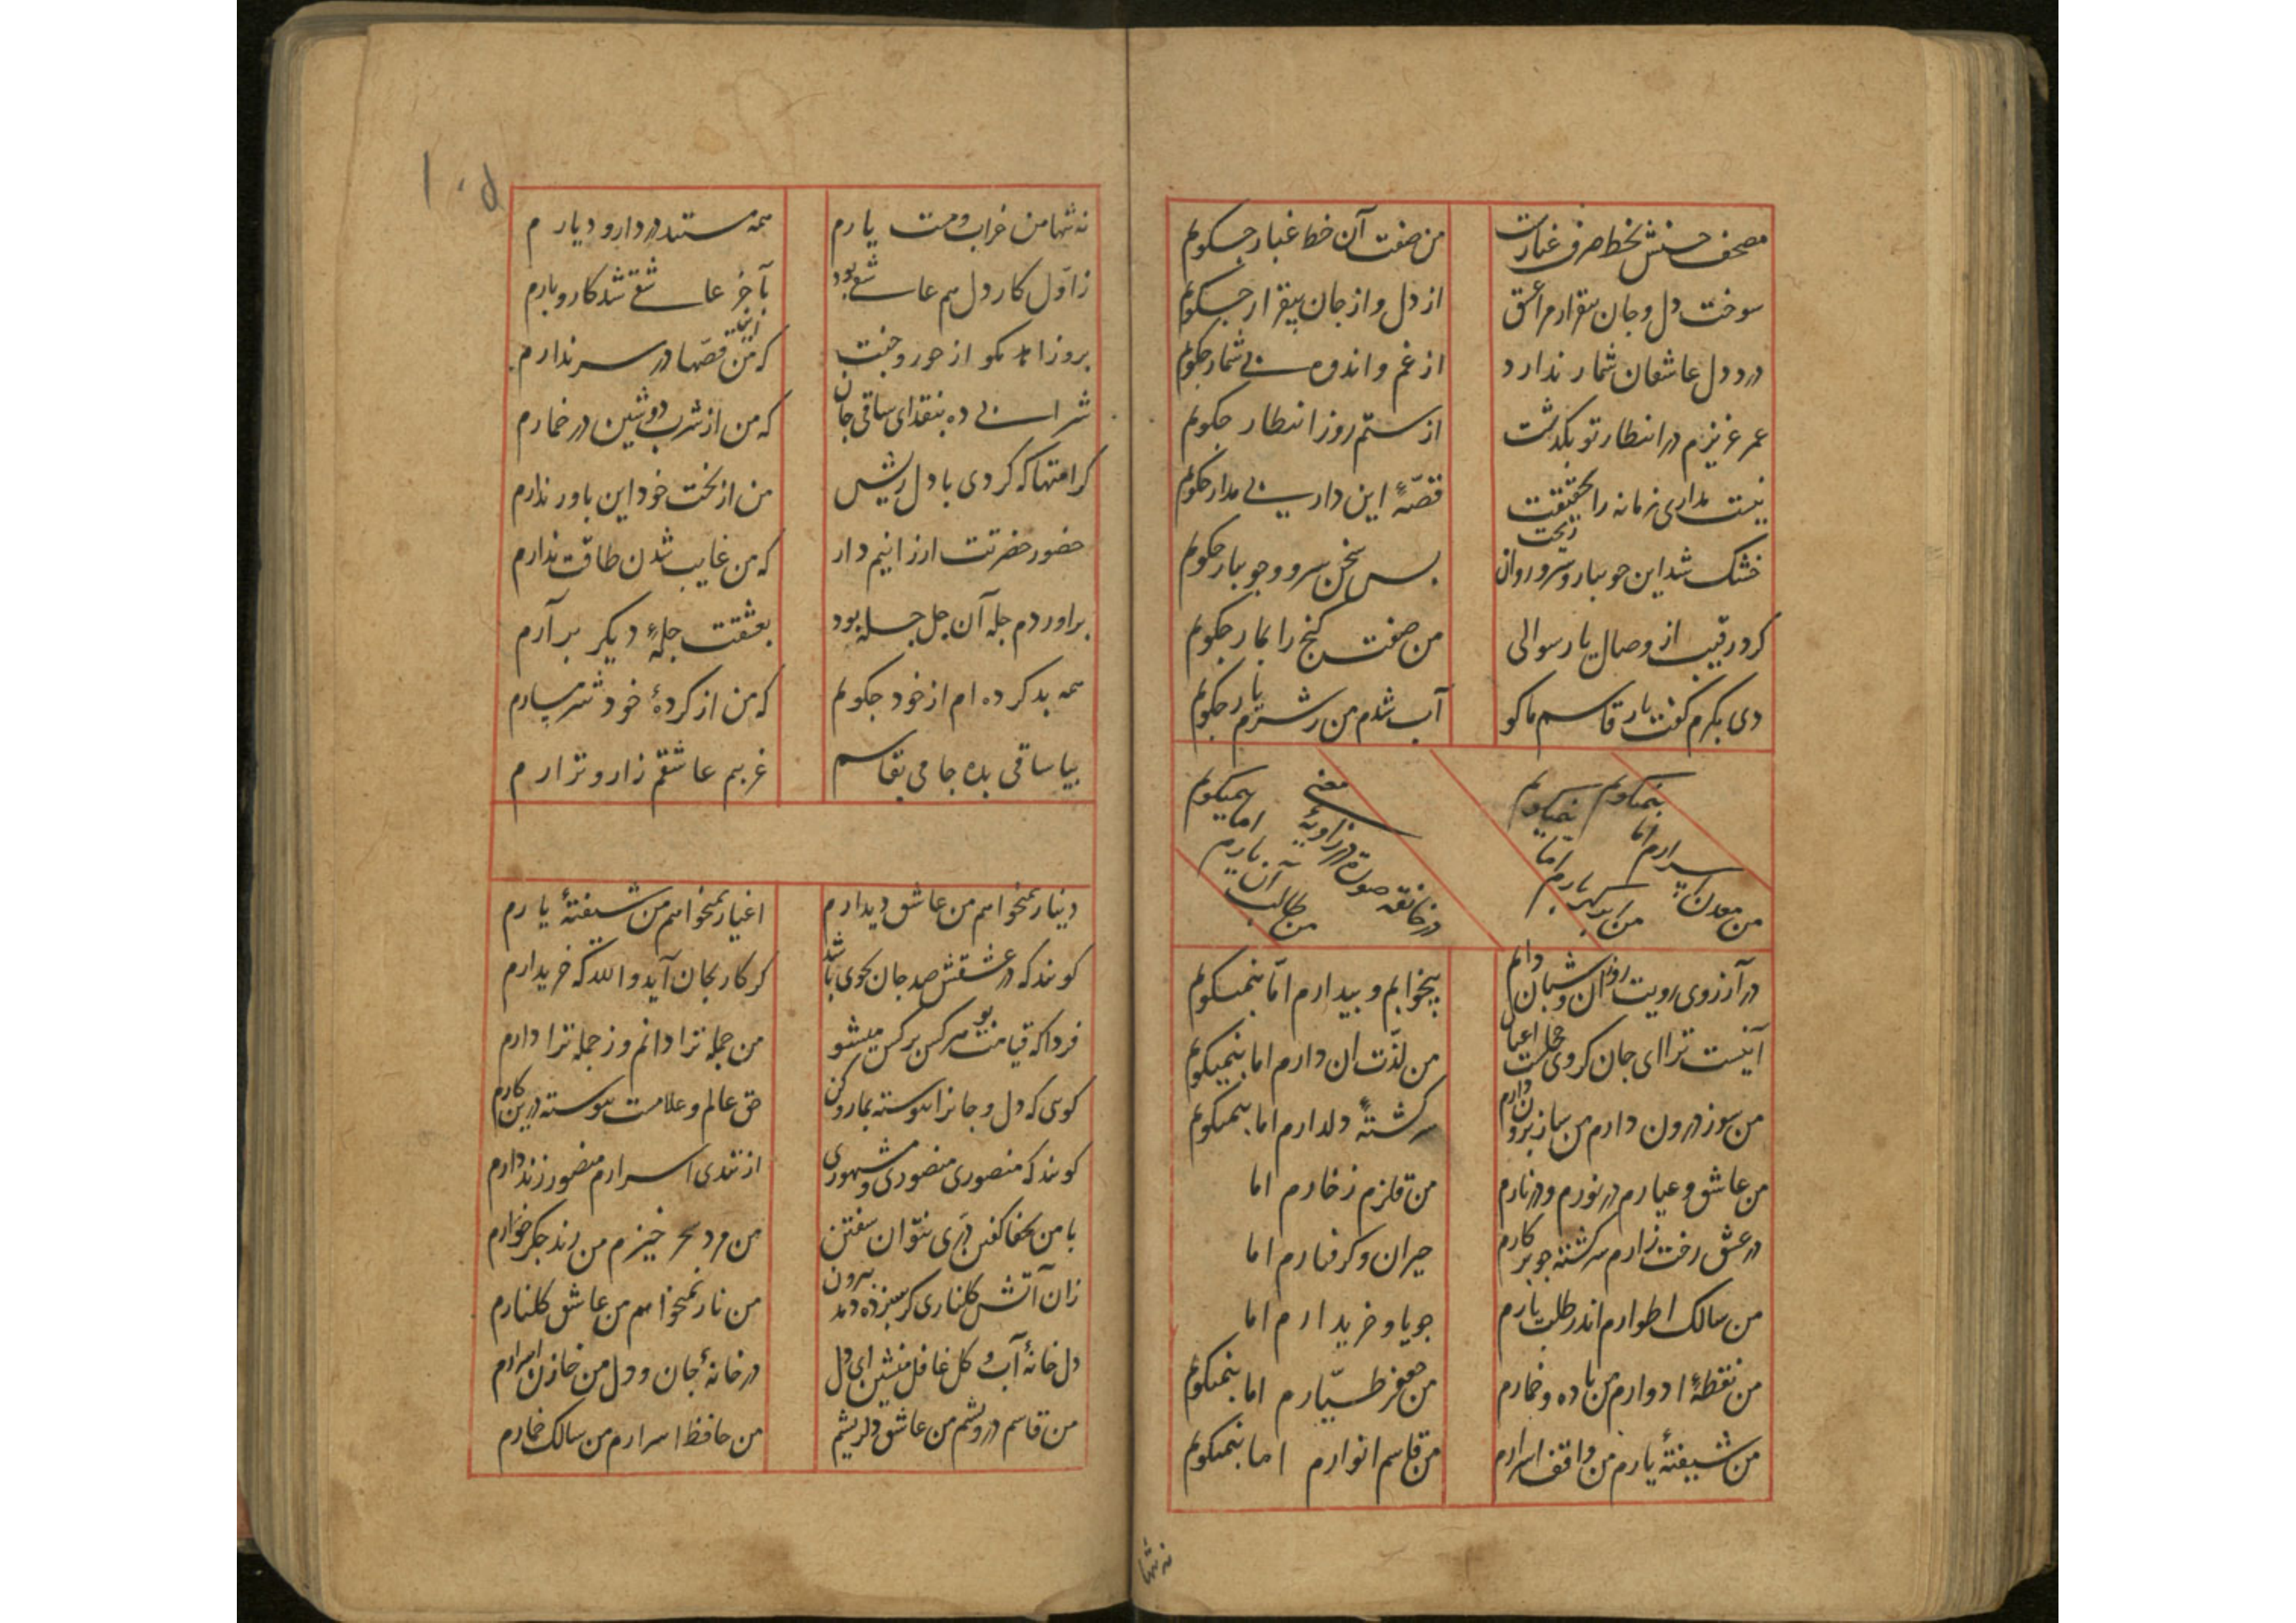 مصحف حسنش بخط حرف غبارست
من صفت آن خط غبار چکویم
سوخت دل و جان بیقرارم از عشق
از دل و از جان بیقرار چکویم
درد دل عاشقان شمار ندارد
از غم و اندوه بی شمار چکویم
عمر عزیزم در انتظار تو بکذشت
از ستم روز انتظار چکویم
نیست مداری زمانه را بحقیقت
قصّهٔ این دار بی مدار چکویم
خشک شد این جویبار و سرو روان ریخت
بس سخن سرو و جویبار چکویم
کرد رقیب از وصال یار سوالی
من صفت کنج را بمار چکویم
دی بکرم کفت یار قاسم ما کو
آب شدم من ز شرم یار چکویم
من معدن اسرارم اما بنمیکویم
من بندهٔ آن یارم اما بنمیکویم
در خانقه صورة در زاویهٔ معنی
من طالب آن یارم اما بنمیکویم
در آرزوی رویت روزان و شبان دایم
بیخوابم و بیدارم امّا بنمیکویم
من لذّت ان دارم اما بنمیکویم
من سوز درون دارم من ساز برون دارم
سرکشتهٔ دلدارم اما بنمیکویم
من عاشق و عیارم در نورم و در نارم
من قلزم زخارم اما
در عشق رخت زارم سرکشته چو پرکارم
حیران و کرفتارم اما
من سالک اطوارم اندر طلب یارم
جویا و خریدارم اما
من نقطهٔ ادوارم من باده و خمارم
من جعفر طیّارم اما بنمیکویم
من شیفتهٔ یارم من واقف اسرارم
من قاسم انوارم اما بنمیکویم
نه تنها
۱۰۵
نه تنها من خراب و مست یارم
همه مستند در دار و دیارم
ز اوّل کار دل هم عاشقی بود
بآخر عاشقی شد کار و بارم
بروز اهد مکو از حور و جنت
که من زینها قصّها در سر ندارم
شرابی ده بنقد ای ساقی جان
که من از شرب دوشین در خمارم
کرامتها که کردی با دل ریش
من از بخت خود این باور ندارم
حضور حضرتت ارزانیم دار
که من غایب شدن طاقت ندارم
براوردم چلهٔ آن چل چله بود
بعشقت چلهٔ دیکر بر آرم
همه بد کرده ام از خود چکویم
که من از کردهٔ خود شرمسارم
بیا ساقی بده جامی بقاسم
غریبم عاشقم زار و نزارم
دینار نمیخواهم من عاشق دیدارم
اغیار نمیخواهم من شیفتهٔ یارم
کویند که در عشقش صد جان بجوی باشد
کر کار بجان آید والله که خریدارم
فردا که قیامت بود هر کس بر کس میشو
من جمله ترا دانم وز جمله ترا دارم
کویی که دل و جانرا پیوسته بما رو کن
حق عالم و علامست پیوسته درین کارم
کویند که منصوری منصوری و مشهوری
از تندی اسرارم منصور زند دارم
با من بجفا کفتی دری نتوان سفتن
من مرد سحر خیزم من رند جکر خوارم
زان آتش کلناری کر سبزه دمد بیرون
من نار نمیخواهم من عاشق کلنارم
دل خانهٔ آب و کل غافل منشین ای دل
در خانهٔ جان و دل من خازن اسرارم
من قاسم درویشم من عاشق دلریشم
من حافظ اسرارم من سالک خمارم